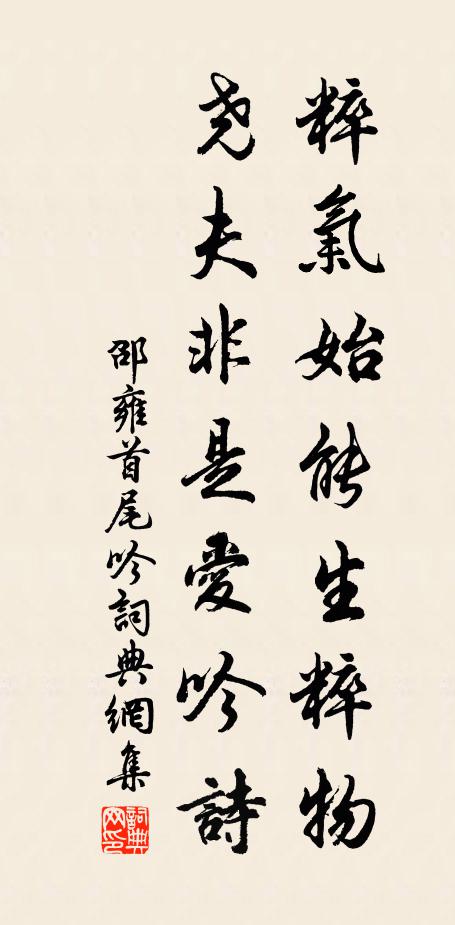 粹氣始能生粹物
尧夫非是愛吟詩
邵雍首尾吟詞典網集
詞典
网印